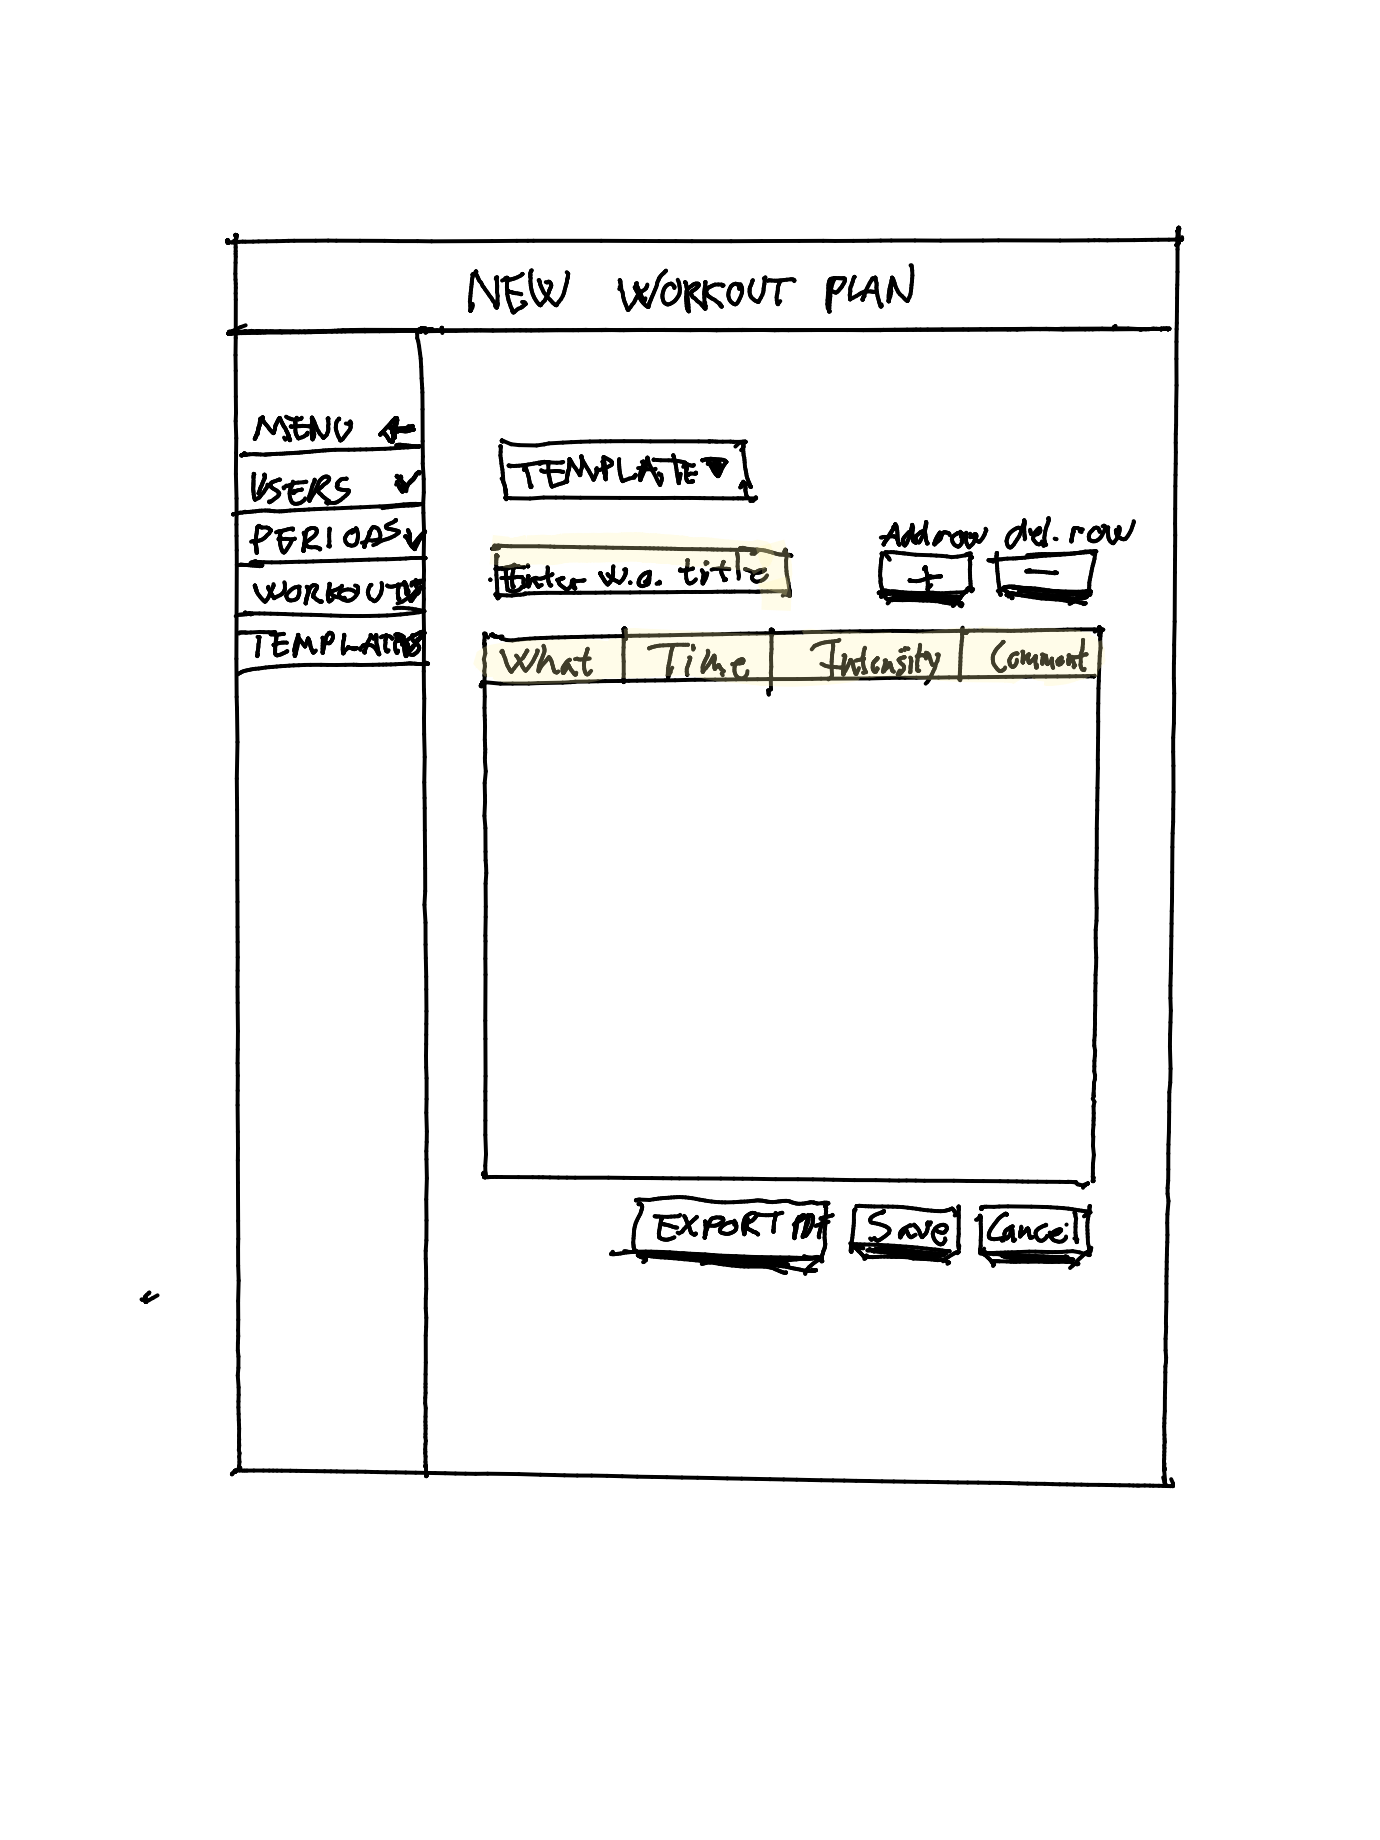 NEW WORKOUT PLAN
MENU
USERS
PERIODS
WORKOUT
TEMPLATES
TEMPLATE
Enter w.o. title
Add row del. row
+ −
What Time Intensity Comment
EXPORT PDF Save Cancel